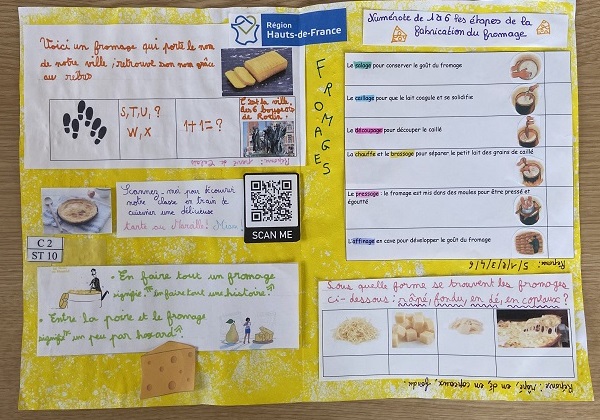 Voici un fromage qui porte le nom
de notre ville, retrouve son nom grâce
au rébus
S, T, U, ?
W, X
1+1=?
C'est la ville
des 6 bourgeois
de Rodin.
Région
Hauts-de-France
FROMAGES
Scannez-moi pour découvrir
notre classe en train de
cuisiner une délicieuse
tarte au Maroilles! Miam!
SCAN ME
C 2
ST 10
• En faire tout un fromage
signifie "en faire toute une histoire".
• Entre la poire et le fromage
signifie "un peu par hasard".
Numérote de 1 à 6 les étapes de la
fabrication du fromage
Le salage pour conserver le goût du fromage
Le caillage pour que le lait coagule et se solidifie
Le découpage pour découper le caillé
La chauffe et le brassage pour séparer le petit lait des grains de caillé
Le pressage : le fromage est mis dans des moules pour être pressé et
égoutté
L'affinage en cave pour développer le goût du fromage
Réponse : 5/1/2/3/4/6
Sous quelle forme se trouvent les fromages
ci-dessous : râpé, fondu, en dé, en copeaux ?
Réponse : râpé, en dé, en copeaux, fondu.